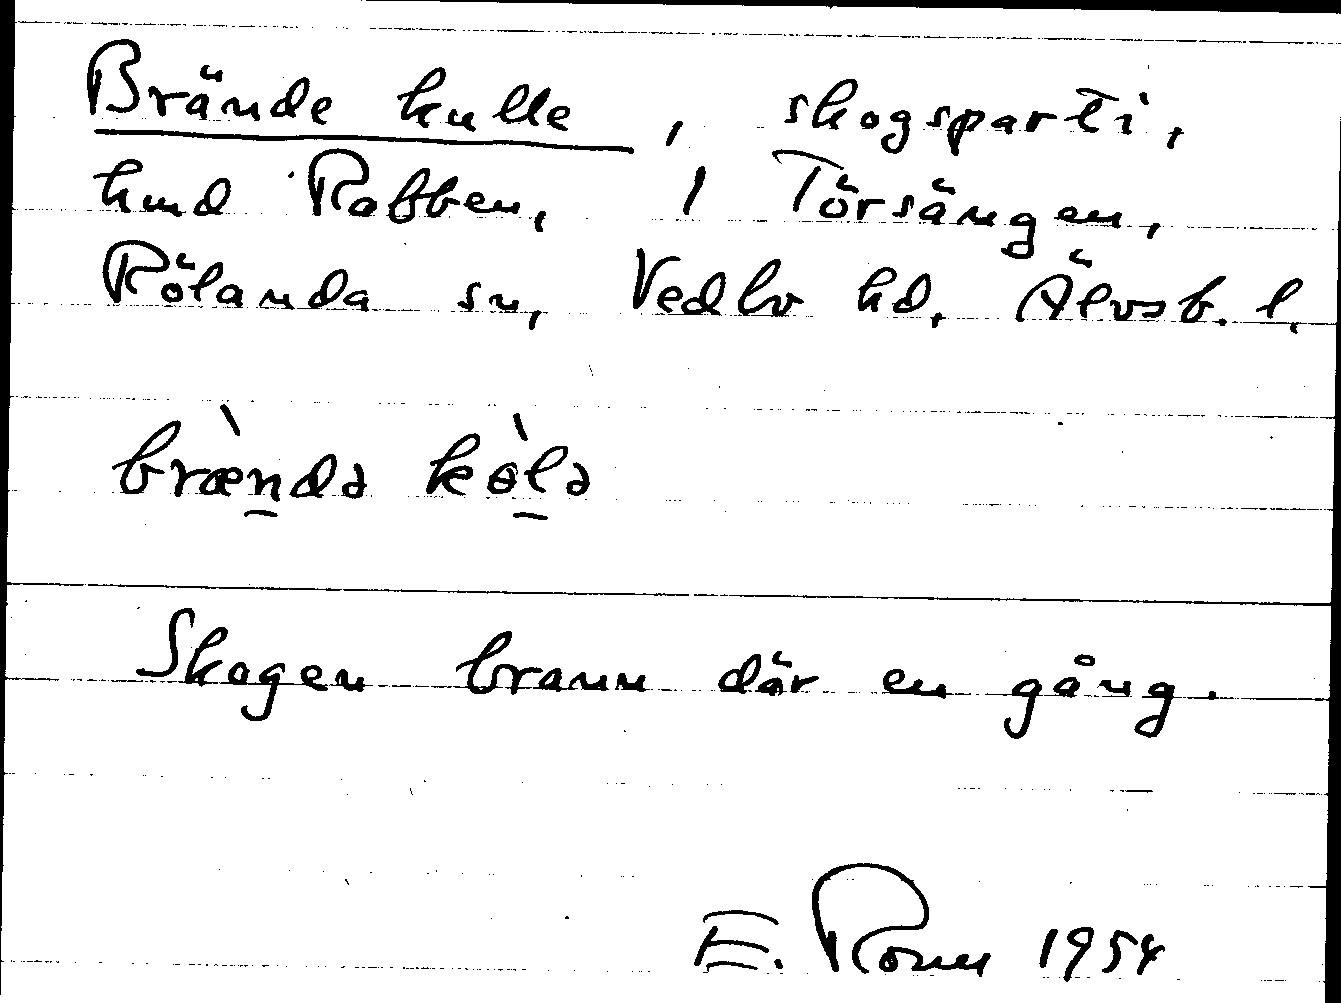 Brände kulle, skogsparti,
hmd Rabben, 1 Törsängen,
Rölanda sn, Vedbo hd, Älvsb. l.
brændə kɵlə
Skogen brann där en gång.
E. 1954